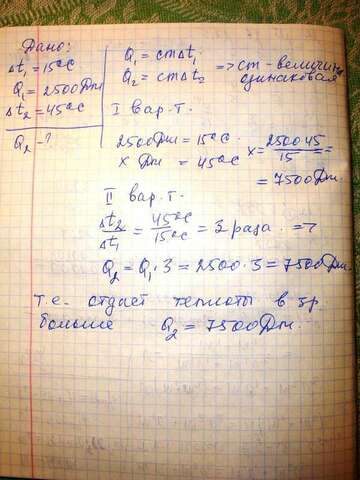 Дано:
Δt₁ = 15°C
Q₁ = 2500 Дж
Δt₂ = 45°C
Q₂ - ?
Q₁ = cmΔt₁
Q₂ = cmΔt₂ => cm - величина одинаковая
I вар-т.
2500 Дж = 15°C
x Дж = 45°C
x = 2500·45 / 15 =
= 7500 Дж.
II вар-т.
Δt₂ / Δt₁ = 45°C / 15°C = 3 раза. =>
Q₂ = Q₁ · 3 = 2500 · 3 = 7500 Дж.
Т.е. отдает теплоты в 3р.
больше Q₂ = 7500 Дж.